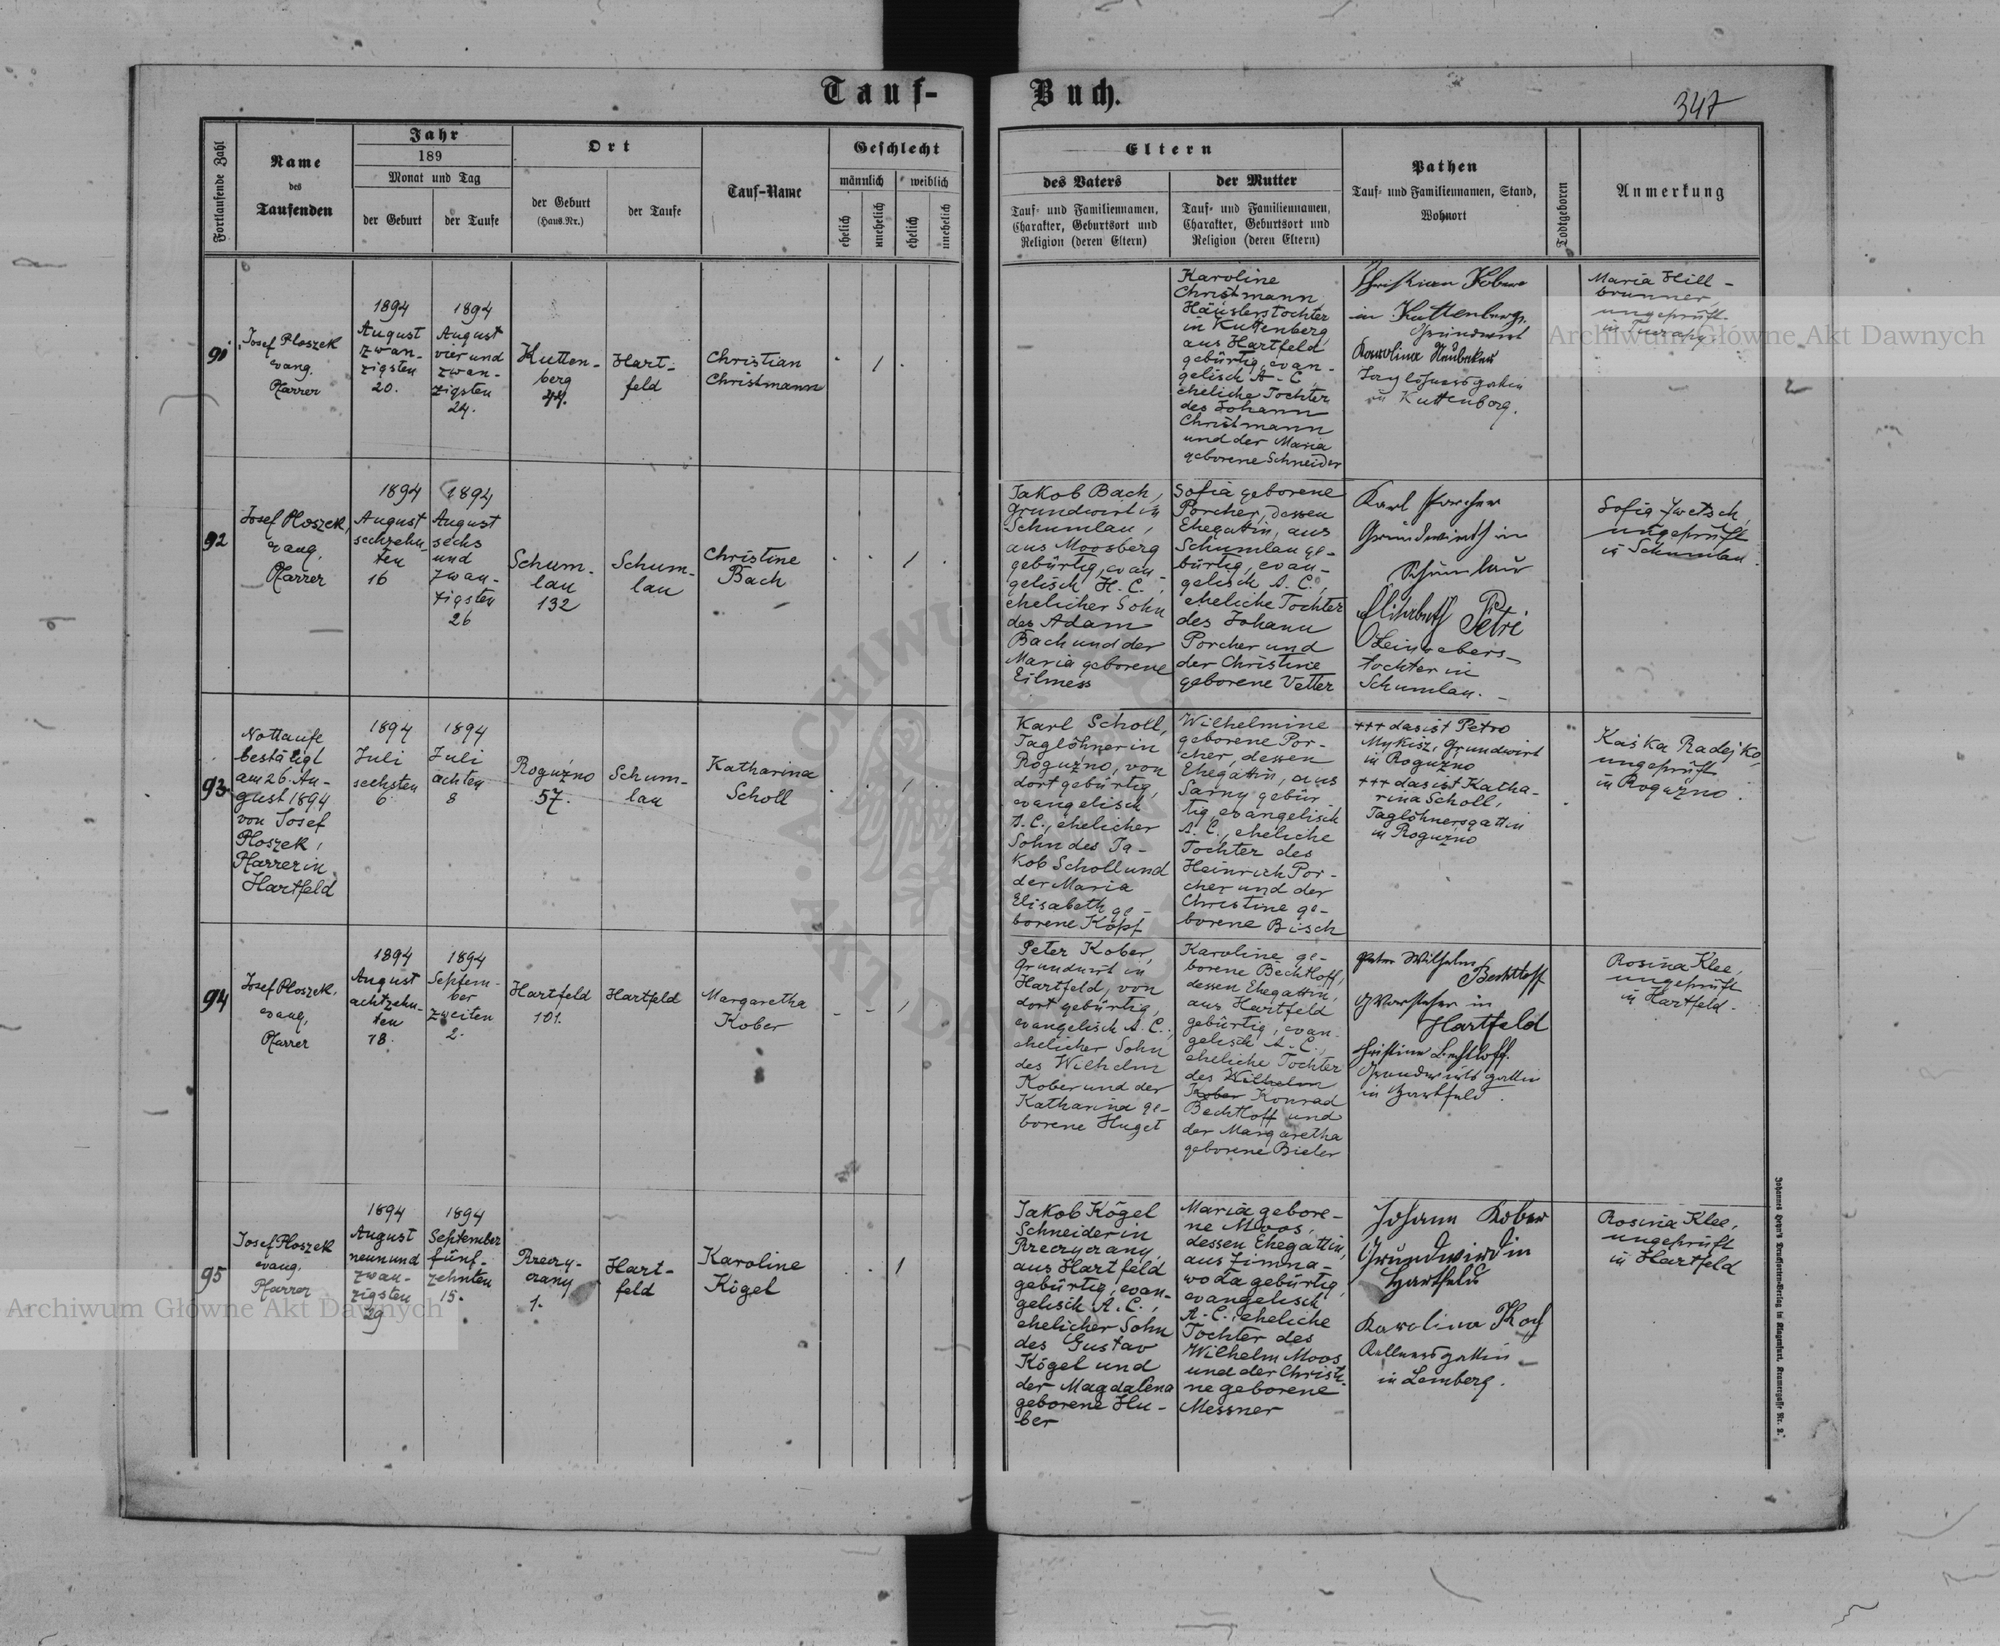 Tauf-Buch.
347
Fortlaufende Zahl
Name
des
Taufenden
Jahr
189
Monat und Tag
der Geburt
der Taufe
Ort
der Geburt
(Haus-Nr.)
der Taufe
Tauf-Name
Geschlecht
männlich
weiblich
ehelich
unehelich
ehelich
unehelich
Eltern
des Vaters
Tauf- und Familiennamen,
Charakter, Geburtsort und
Religion (deren Eltern)
der Mutter
Tauf- und Familiennamen,
Charakter, Geburtsort und
Religion (deren Eltern)
Pathen
Tauf- und Familiennamen, Stand,
Wohnort
Todtgeboren
Anmerkung
91
Josef Ploszek
evang.
Pfarrer
1894
August
zwan-
zigsten
20.
1894
August
vier und
zwan-
zigsten
24.
Kutten-
berg
44.
Hart-
feld
Christian
Christmann
Karoline
Christmann,
Häuslerstochter
in Kuttenberg,
aus Hartfeld
gebürtig, evan-
gelisch A. C.,
eheliche Tochter
des Johann
Christmann
und der Maria
geborene Schneider
Christian Kober
in Kuttenberg.
Grundwirt
Karolina Neubeker
Taglöhnersgattin
in Kuttenberg.
Maria Hill-
brunner,
ungeprüft
92
Josef Ploszek,
evang.
Pfarrer
1894
August
sechzehn-
ten
16
1894
August
sechs
und
zwan-
zigsten
26
Schum-
lau
132
Schum-
lau
Christine
Bach
Jakob Bach,
Grundwirt in
Schumlau,
aus Moosberg
gebürtig, evan-
gelisch H. C.,
ehelicher Sohn
des Adam
Bach und der
Maria geborene
Eilmess
Sofia geborene
Porcher, dessen
Ehegattin, aus
Schumlau ge-
bürtig, evan-
gelisch A. C.,
eheliche Tochter
des Johann
Porcher und
der Christine
geborene Vetter
Karl Porcher
Grundwirth in
Schumlau
Elisabeth Petri
Leinwebers-
tochter in
Schumlau.
Sofia Zwetsch,
ungeprüft
in Schumlau.
93
Nottaufe
bestätigt
am 26. Au-
gust 1894
von Josef
Ploszek,
Pfarrer in
Hartfeld
1894
Juli
sechsten
6
1894
Juli
achten
8
Roguźno
57.
Schum-
lau
Katharina
Scholl
Karl Scholl,
Taglöhner in
Roguźno, von
dort gebürtig,
evangelisch
A. C., ehelicher
Sohn des Ja-
kob Scholl und
der Maria
Elisabeth ge-
borene Köpf
Wilhelmine
geborene Por-
cher, dessen
Ehegattin, aus
Sarny gebür
tig, evangelisch
A. C., eheliche
Tochter des
Heinrich Por-
cher und der
Christine ge-
borene Bisch
+++ das ist Petro
Mykisz, Grundwirt
in Roguźno
+++ das ist Katha-
rina Scholl,
Taglöhnersgattin
in Roguźno
Kaśka Radejko,
ungeprüft
in Roguźno.
94
Josef Ploszek.
evang.
Pfarrer
1894
August
achtzehn-
ten
18.
1894
Septem-
ber
zweiten
2.
Hartfeld
101.
Hartfeld
Margaretha
Kober
Peter Kober,
Grundwirt in
Hartfeld, von
dort gebürtig,
evangelisch A. C.,
ehelicher Sohn
des Wilhelm
Kober und der
Katharina ge-
borene Huget
Karoline ge-
borene Bechtloff,
dessen Ehegattin,
aus Hartfeld
gebürtig, evan-
gelisch A. C.,
eheliche Tochter
des Wilhelm
Kober Konrad
Bechtloff und
der Margaretha
geborene Bieler
Wilhelm
Bechtloff
in
Hartfeld
Christine Bechtloff.
Grundwirtsgattin
in Hartfeld.
Rosina Klee,
ungeprüft
in Hartfeld.
95
Josef Ploszek
evang.
Pfarrer
1894
August
neunund
zwan-
zigsten
29
1894
September
fünf-
zehnten
15.
Rzeczy-
czany
1.
Hart-
feld
Karoline
Kögel
Jakob Kögel
Schneider in
Rzeczyczany,
aus Hartfeld
gebürtig, evan-
gelisch A. C.,
ehelicher Sohn
des Gustav
Kögel und
der Magdalena
geborene Hu-
ber
Maria gebore-
ne Moos,
dessen Ehegattin,
aus Zimna-
woda gebürtig,
evangelisch
A. C., eheliche
Tochter des
Wilhelm Moos
und der Christi-
ne geborene
Messner
Johann Kober
Grundwirt in
Hartfeld
Karolina Koch
Kellnersgattin
in Lemberg.
Rosina Klee,
ungeprüft
in Hartfeld
Archiwum Główne Akt Dawnych
Archiwum Główne Akt Dawnych